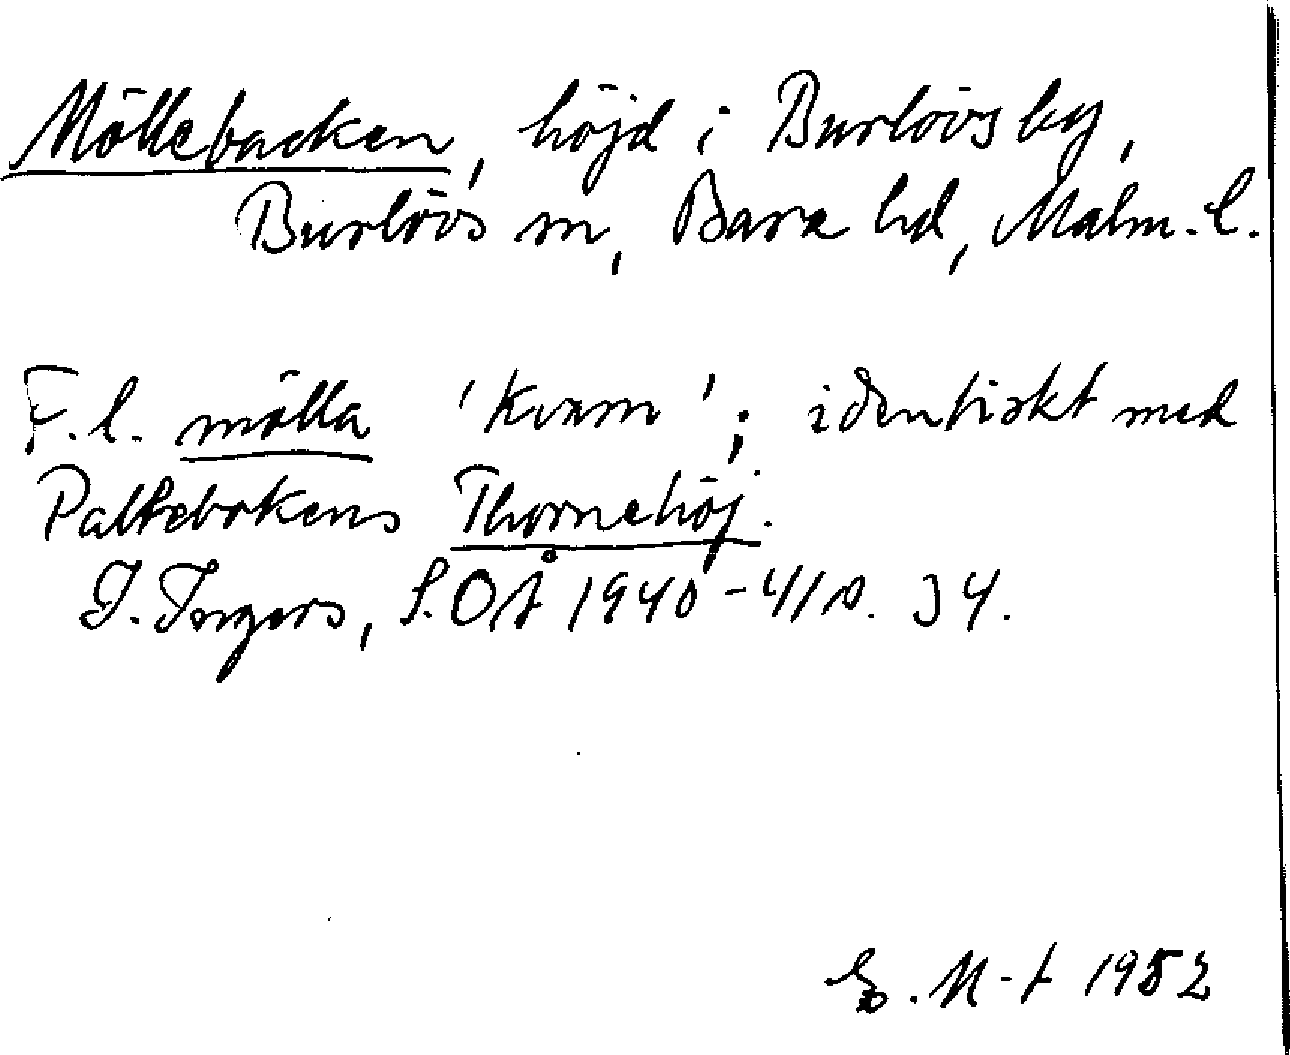 Möllebacken, höjd i Burlövs by,
Burlövs sn, Bara hd, Malm. l.
F. l. mölla 'kvarn'; identiskt med
Paltebokens Thornehöj.
I. Ingers, S.O.Å 1940-41 s. 34.
E. M-t 1952